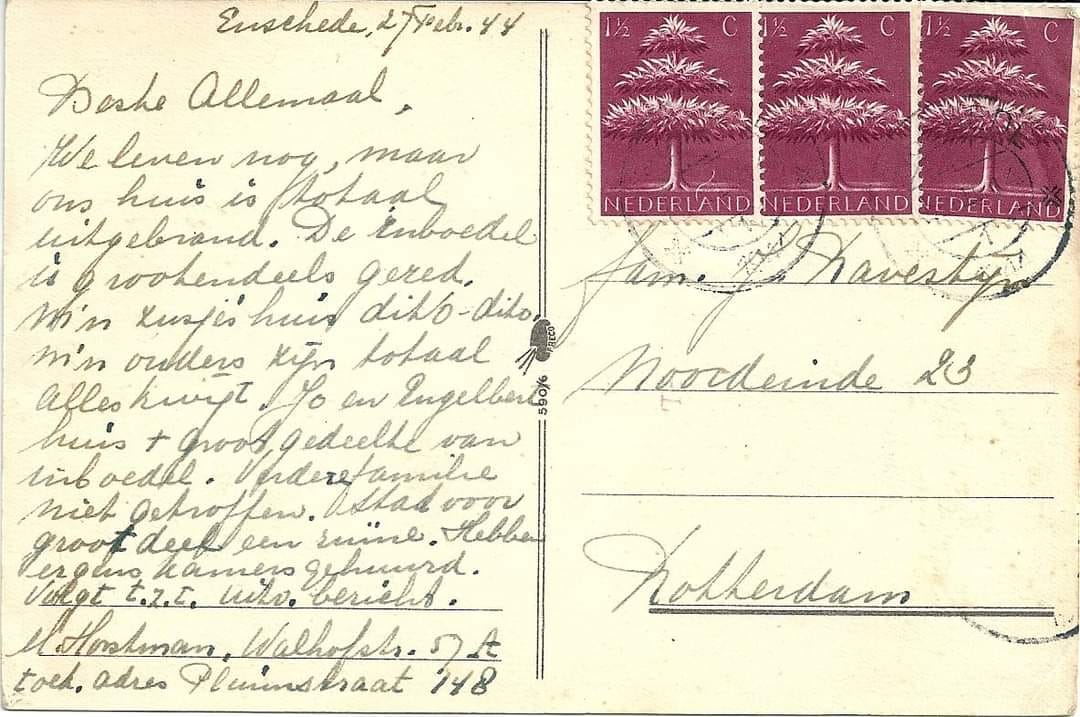 Enschede, 27 Febr. 44
Beste Allemaal,
We leven nog, maar
ons huis is totaal
uitgebrand. De inboedel
is grootendeels gered.
M'n zusje's huis dito-dito.
M'n ouders zijn totaal
alles kwijt. Jo en Engelbert
huis + groot gedeelte van
inboedel. Verdere familie
niet getroffen. Stad voor
groot deel een ruïne. Hebben
ergens kamers gehuurd.
Volgt t.z.t. uitv. bericht.
M Horstman, Walhofstr. 57 A
toek. adres Pluimstraat 148
59076
FRECO
1½ C
NEDERLAND
1½ C
NEDERLAND
1½ C
NEDERLAND
Fam. J. Ravestijn
Noordeinde 23
T
Rotterdam